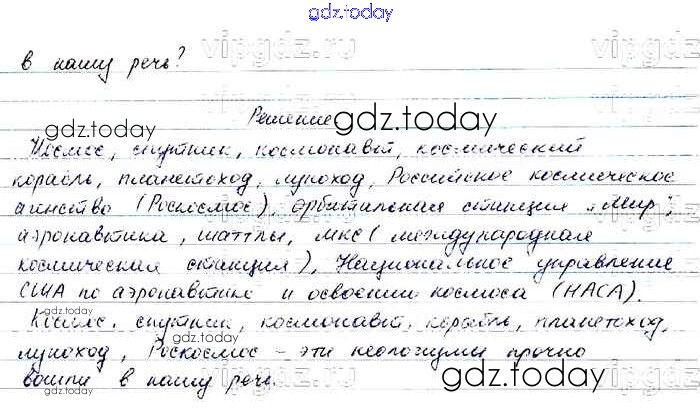 gdz.today
в нашу речь?
Решение
Космос, спутник, космонавт, космический
корабль, планетоход, луноход, Российское космическое
агенство (Роскосмос), орбитальная станция „Мир",
аэронавтика, шаттлы, МКС (международная
космическая станция), Национальное управление
США по аэронавтике и освоению космоса (НАСА).
Космос, спутник, космонавт, корабль, планетоход,
луноход, Роскосмос – эти неологизмы прочно
вошли в нашу речь.
vipgdz.ru
vipgdz.ru
gdz.today
gdz.today
gdz.today
gdz.today
gdz.today